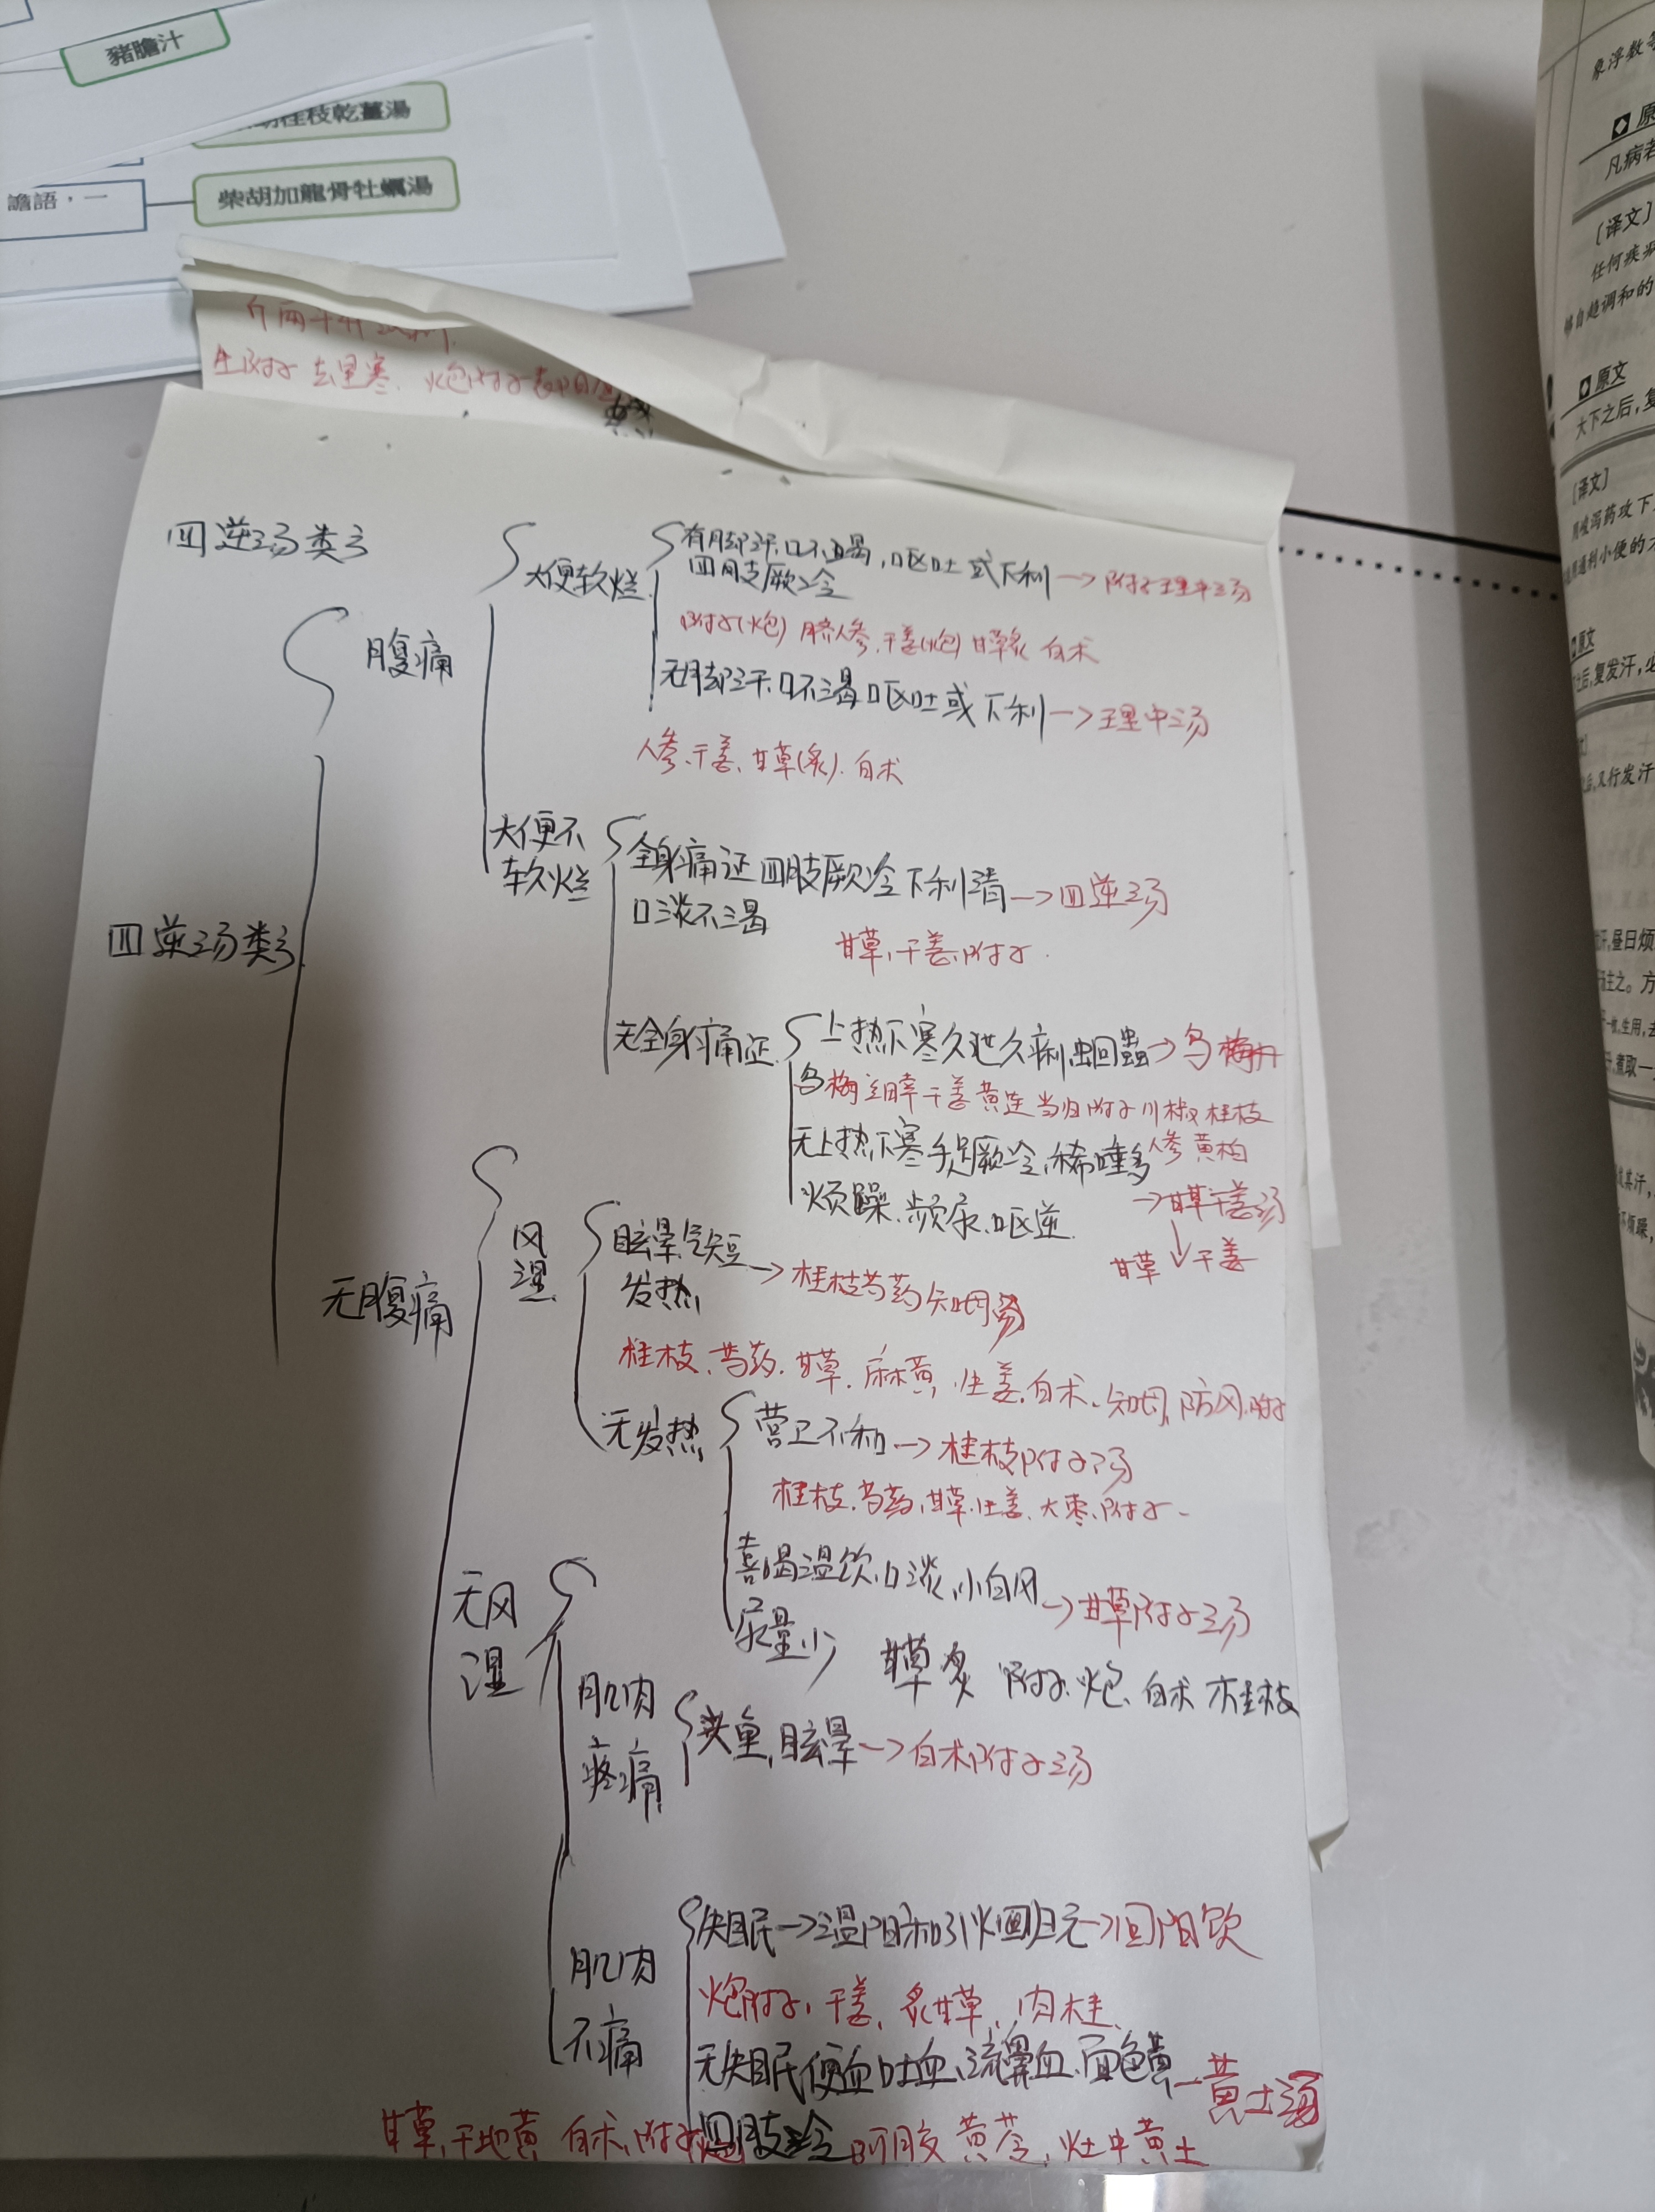 豬膽汁
桂枝乾薑湯
譫語，一
柴胡加龍骨牡蠣湯
生附子 去里寒. 炮附子
四逆汤类方
大便软烂
有脚汗.口不渴,呕吐或下利 → 附子理中汤
四肢厥冷
附子(炮) 人参.干姜(炮) 甘草炙 白术
腹痛
无脚汗.口不渴 呕吐或下利 → 理中汤
人参.干姜.甘草(炙).白术
大便不
软烂
全身痛证 四肢厥冷 下利清 → 四逆汤
口淡不渴
甘草,干姜,附子.
四逆汤类方
无全身痛证
上热下寒久泄久痢,蛔蟲 → 乌梅丸
乌梅 细辛 干姜 黄连 当归 附子 川椒 桂枝
人参 黄柏
无上热下寒 手足厥冷,稀唾多
烦躁.频尿.呕逆.
→ 甘草干姜汤
甘草 ↓ 干姜
无腹痛
风
湿
眩晕.气短 → 桂枝芍药知母汤
发热
桂枝.芍药.甘草.麻黄.生姜.白术.知母,防风.附子
无发热
营卫不和 → 桂枝附子汤
桂枝.芍药,甘草.生姜.大枣.附子.
喜喝温饮.口淡.小白风 → 甘草附子汤
尿量少
甘草炙 附子.炮.白术 桂枝
无风
湿
肌肉
疼痛
头重,眩晕 → 白术附子汤
肌肉
不痛
失眠 → 温阳和引火回归元 → 回阳饮
炮附子,干姜,炙甘草,肉桂.
无失眠便血吐血,流鼻血.面色黄 — 黄土汤
四肢冷
甘草,干地黄 白术,附子 阿胶 黄芩,灶中黄土
象浮数
原
凡病者
［译文］
任何疾
自趋调和的
原文
大下之后,复
［译文］
用峻泻药攻下
通利小便的
原文
后,复发汗,必
后,又行发汗
汗,昼日烦
汤主之。方
一枚,生用,去
煮取一
其汗,
烦躁,